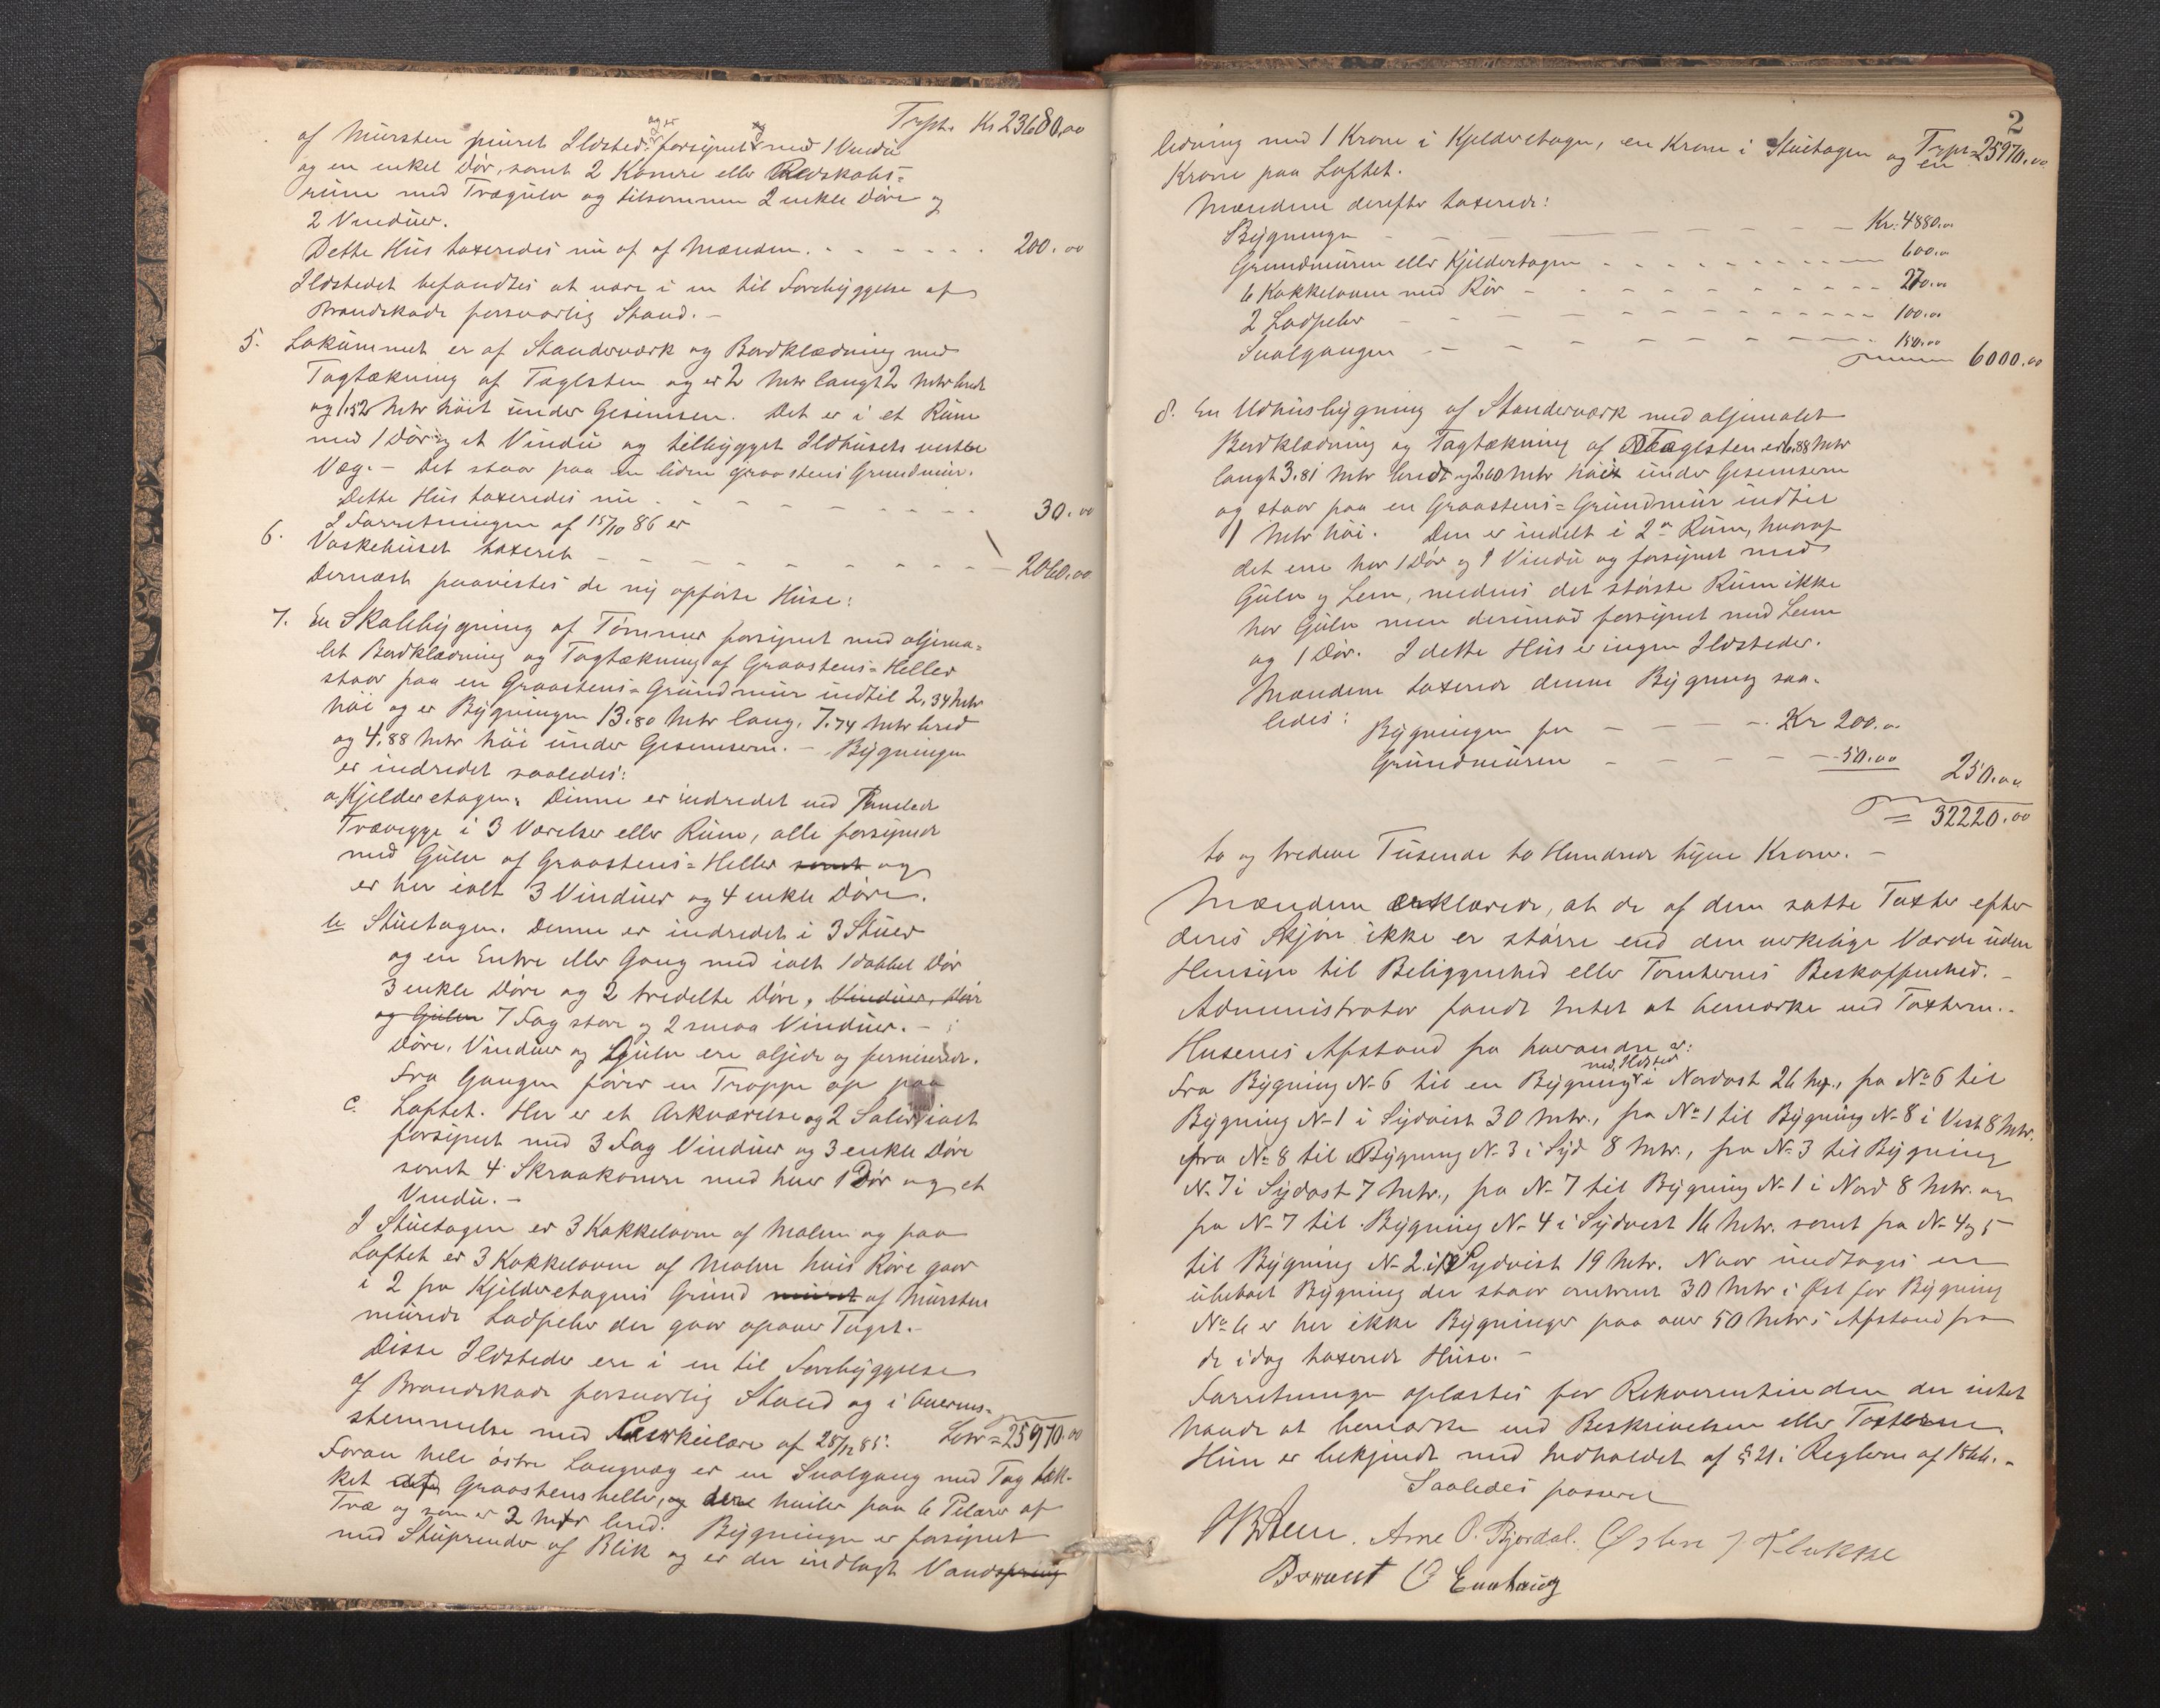 Trpt. Kr 23680,00
af Mursten muret Ildsted, og er forsynet med 1 Vindu
og en enkel Dör, samt 2 Kamre eller Redskabs=
rum med Trægulv og tilsammen 2 enkle Döre og
2 Vinduer.
Dette Hus taxeredes nu af af Mændene. - - - - - 200.00
Ildstedet befandtes at være i en til Forebyggelse af
Brandskade forsvarlig Stand. -
5. Lokummet er af Standerværk og Bordklædning med
Tagtækning af Taglsten og er 2 Mtr langt 2 Mtr bredt
og 1,52 Mtr höit under Gesimsen. Det er i et Rum
med 1 Dör og et Vindu og tilbygget Ildhusets vestre
Væg. - Det staar paa en liden Graastens Grundmur.
Dette Hus taxeredes nu - - - - - - - 30.00
I Forretningen af 15/10 86 er
6. Vaskehuset taxeret - - - - - - - 2060.00
Dernæst paavistes de ny opförte Huse:
7. En Skolebygning af Tömmer forsynet med oljema=
let Bordklædning og Tagtækning af Graastens=Heller
staar paa en Graastens=Grundmur indtil 2,34 Mtr
höi og er Bygningen 13.80 Mtr lang, 7.74 Mtr bred
og 4.88 Mtr höi under Gesimsen. - Bygningen
er indredet saaledes:
a, Kjelderetagen. Denne er indredet ved Panelede
Trævegge i 3 Værelser eller Rum, alle forsynede
med Gulv af Graastens=Heller samt og
er her ialt 3 Vinduer og 4 enkle Döre.
b. Stuetagen. Denne er indredet i 3 Stuer
og en Entre eller Gang med ialt 1 dobbel Dör
3 enkle Döre og 2 tredelte Döre, Vinduer, Dör
og Gulve 7 Fag store og 2 smaa Vinduer. -
Döre, Vinduer og Gulve ere oljede og ferniserede.
Fra Gangen förer en Trappe op paa
c. Loftet. Her er et Arkværelse og 2 Saler ialt
forsynet med 3 Fag Vinduer og 3 enkle Döre
samt 4 Skraakamre med hver 1 Dör og et
Vindu. -
I Stuetagen er 3 Kakkelovne af Malm og paa
Loftet er 3 Kakkelovne af Malm hvis Röre gaar
i 2 fra Kjelderetagens Grund muret af Mursten
murede Ladpiber der gaar opover Taget. -
Disse Ildsteder ere i en til Forebyggelse
af Brandskade forsvarlig Stand og i Overens=
stemmelse med Cirkulære af 28/12 85. Lat. = 25970.00
Foran hele östre Langvæg er en Svalgang med Tag tæk-
ket af Graastensheller, og der hviler paa 6 Pelarer af
Træ og som er 2 Mtr bred. Bygningen er forsynet
med Stuprender af Blik og er der indlagt Vandspring
2
Trpt = 25970.00
ledning med 1 Krane i Kjelderetagen, en Krane i Stuetagen og en
Krane paa Loftet.
Mændene derefter taxerede:
Bygningen - - - - - Kr. 4880.00
Grundmuren eller Kjelderetagen - - - - - 600.00
6 Kakkelovne med Rör - - - - - 270.00
2 Ladpiber - - - - - 100.00
Svalgangen - - - - - 150.00
6000.00
8. En Udhusbygning af Standerværk med oljemalet
Bordklædning og Tagtækning af Taglsten er 6.88 Mtr
langt 3.81 Mtr bredt og 2.60 Mtr höit under Gesimserne
og staar paa en Graastens=Grundmur indtil
1 Mtr höi. Den er indelt i 2de Rum, hvoraf
det ene har 1 Dör og 1 Vindu og forsynet med
Gulv og Lem, medens det störste Rum ikke
har Gulv men derimod forsynet med Lem
og 1 Dör. I dette Hus er ingen Ildsteder.
Mændene taxerede denne Bygning saa-
ledes: Bygningen for - - - - Kr 200.00
Grundmuren - - - - - 50.00
250.00
= 32220.00
to og tredive Tusende to Hundrede tyve Kroner. -
Mændene erklærede, at de af dem satte Taxter efter
deres Skjön ikke er större end den virkelige Værdi uden
Hensyn til Beliggenhed eller Tomternes Beskaffenhed. -
Administrator fandt Intet at bemærke ved Taxterne. -
Husenes Afstand fra hverandre er:
Fra Bygning No 6 til en Bygning med Ildsted i Nordost 26 Mtr., fra No 6 til
Bygning No 1 i Sydvest 30 Mtr., fra No 1 til Bygning No 8 i Vest 8 Mtr.
fra No 8 til Bygning No 3 i Syd 8 Mtr., fra No 3 til Bygning
No 7 i Sydost 7 Mtr., fra No 7 til Bygning No 1 i Nord 8 Mtr. og
fra No 7 til Bygning No 4 i Sydvest 16 Mtr. samt fra No 4 og 5
til Bygning No 2 i Sydvest 19 Mtr. Naar undtages en
ubeboet Bygning der staar omtrent 30 Mtr i Øst for Bygning
No 6 er her ikke Bygninger paa over 50 Mtr i Afstand fra
de idag taxerede Huse. -
Forretningen oplæstes for Rekvirentinden der intet
havde at bemærke ved Beskrivelsen eller Taxterne
Hun er bekjendt med Indholdet af § 21 i Reglerne af 1846. -
Saaledes passeret
Arne O. Bjordal. Østen J Flukke
Berent O Enehaug